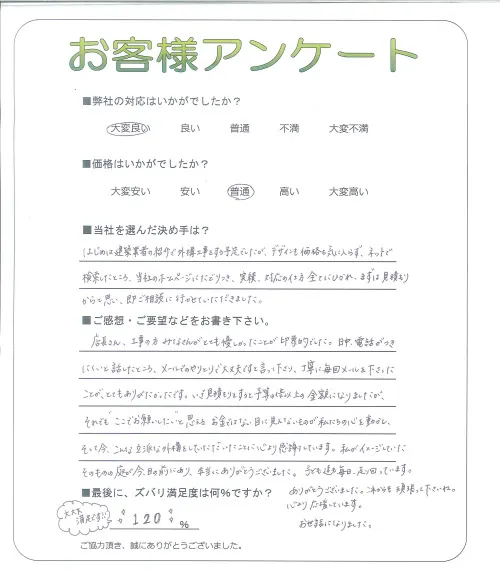 お客様アンケート
■弊社の対応はいかがでしたか?
大変良い 良い 普通 不満 大変不満
■価格はいかがでしたか?
大変安い 安い 普通 高い 大変高い
■当社を選んだ決め手は?
はじめは建築業者の紹介で外構工事をする予定でしたが、デザインも価格も気に入らず、ネットで
検索したところ、当社のホームページにたどりつき、実績、対応の仕方全てにひかれ、まずは見積もり
からと思い、即ご相談に行かせていただきました。
■ご感想・ご要望などをお書き下さい。
店長さん、工事の方みなさんがとても優しかったことが印象的でした。日中、電話がつき
にくいと話したところ、メールでのやりとりで大丈夫だと言って下さり、丁寧に毎回メールを下さった
ことが、とてもありがたかったです。いざ見積もりをすると予算の倍以上の金額になりましたが、
それでも"ここでお願いしたい"と思える お金ではない目に見えないものが私たちの心を動かし、
そして今、こんな立派な外構をしていただいたことに心より感謝しています。私がイメージしていた
そのものの庭が今目の前にあり、本当にありがとうございました。子ども達も毎日、走り回っています。
■最後に、ズバリ満足度は何%ですか?
ありがとうございました。これからも頑張って下さいね。
心より応援しています。
お世話になりました。
大大大
満足です!!
120%
ご協力頂き、誠にありがとうございました。